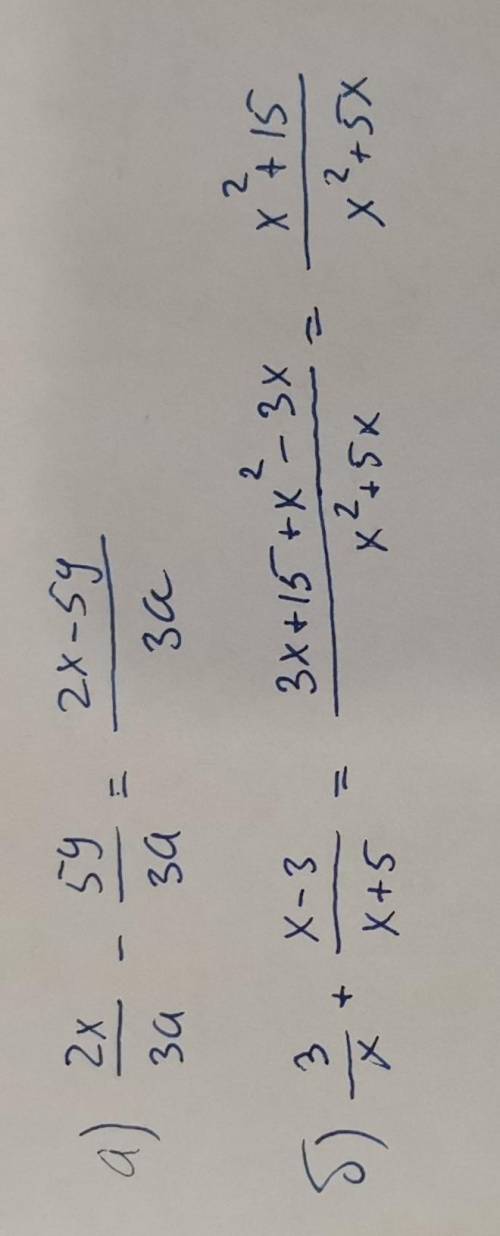 а) 2x/3a - 5y/3a = 2x-5y/3a
б) 3/x + x-3/x+5 = 3x+15+x²-3x/x²+5x = x²+15/x²+5x